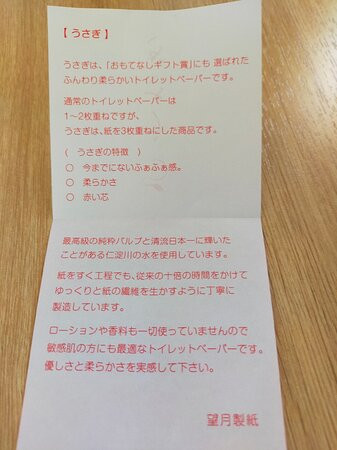 【 うさぎ 】
うさぎは、「おもてなしギフト賞」にも 選ばれた
ふんわり柔らかいトイレットペーパーです。
通常のトイレットペーパーは
1〜2枚重ねですが、
うさぎは、紙を3枚重ねにした商品です。
( うさぎの特徴 )
○ 今までにないふぁふぁ感。
○ 柔らかさ
○ 赤い芯
最高級の純粋パルプと清流日本一に輝いた
ことがある仁淀川の水を使用しています。
紙をすく工程でも、従来の十倍の時間をかけて
ゆっくりと紙の繊維を生かすように丁寧に
製造しています。
ローションや香料も一切使っていませんので
敏感肌の方にも最適なトイレットペーパーです。
優しさと柔らかさを実感して下さい。
望月製紙